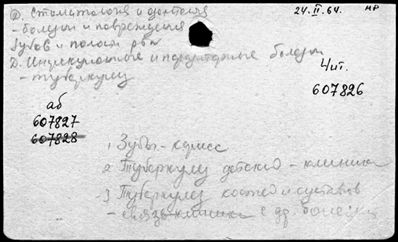 Ф. Стоматология и дентолгия 24.II.64. НР
- Болезни и повреждения
зубов и полости рта
Д. Инфекционные и паразитарные болезни
- туберкулез
Чит.
607826
аб
607827
607828
1 Зубы - кариес
2 Туберкулез детский - клиника
3 Туберкулез костей и суставов
- связь клиника с др. болезн